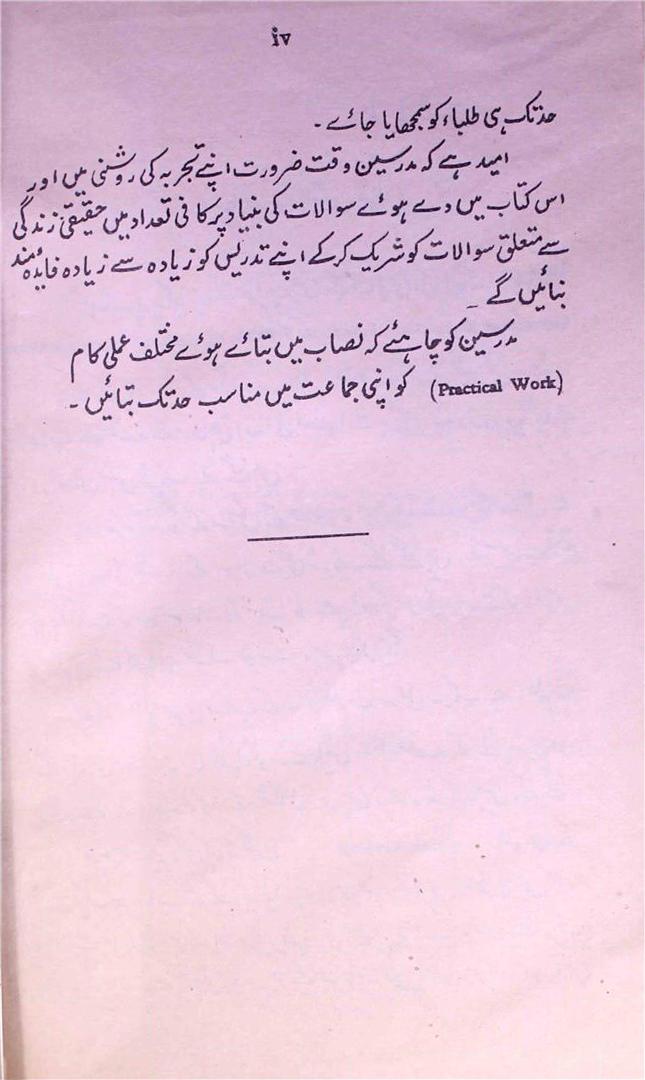 iv
حد تک ہی طلباء کو سمجھایا جائے ۔
امید ہے کہ مدرسین وقت ضرورت اپنے تجربہ کی روشنی میں اور
اس کتاب میں دے ہوئے سوالات کی بنیاد پر کافی تعداد میں حقیقی زندگی
سے متعلق سوالات کو شریک کرکے اپنے تدریس کو زیادہ سے زیادہ فائدہ مند
بنائیں گے ۔
مدرسین کو چاہئے کہ نصاب میں بتائے ہوئے مختلف عملی کام
(Practical Work) کو اپنی جماعت میں مناسب حد تک بتائیں ۔